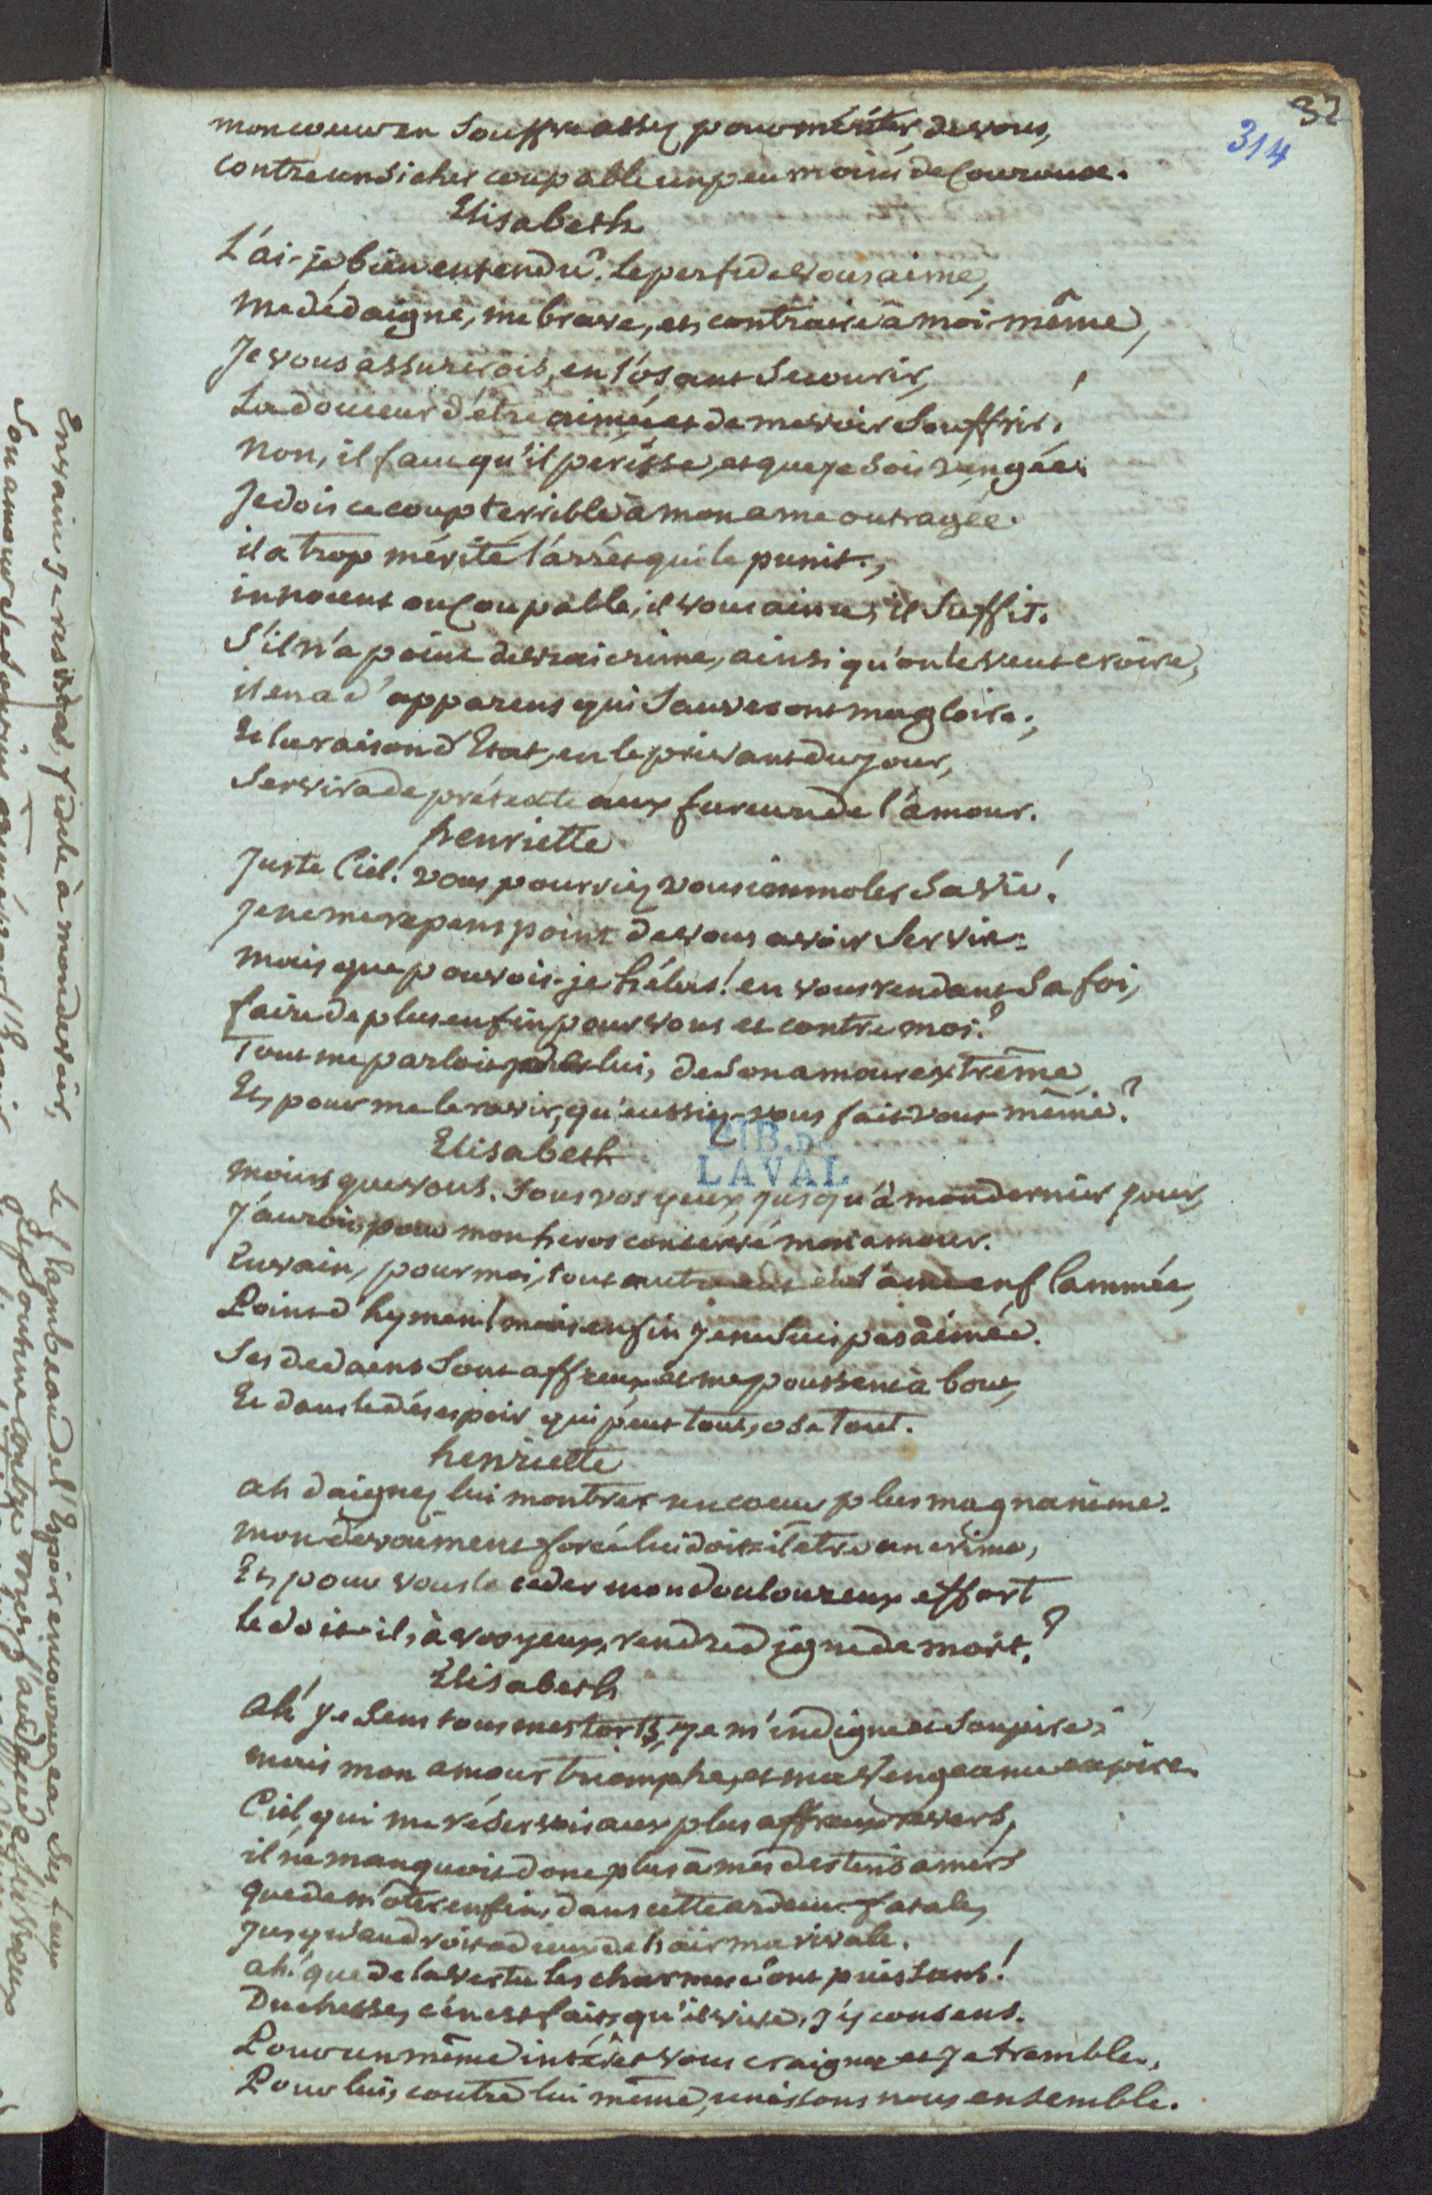 32
314
mon coeur en Souffre assez pour mériter de vous,
contre un Si cher coupable un peu moins de Couroux.
Elisabeth
L'ai-je bien entendu? Le perfide vous aime,
me dédaigne, me brave, et, contraire à moi-même,
Je vous assurerois, en l'ôsant Secourir,
La douceur d'être aimée et de me voir Souffrir!
Non, il faut qu'il perisse, et que je Sois vengée.
Je dois ce coup terrible à mon ame outragée.
il a trop mérité l'arrêt qui le punit.,
innocent ou Coupable, il vous aime, il Suffit.
S'il n'a point de vrai crime, ainsi qu'on le veut croire,
il en a d'apparens qui Sauveront ma gloire;
Et la raison d'Etat, en le privant du jour,
Servira de prétexte aux fureurs de l'amour.
henriette
Juste Ciel! vous pourriez vous immoler Sa vie!
Je ne me repens point de vous avoir Servie:
mais que pouvois-je hélas! en vous rendant Sa foi,
faire de plus enfin pour vous et contre moi?
Tout me parloit de lui, de Son amour extrême
Et, pour me le ravir, qu'eussiez-vous fait vous même?
Elisabeth
BIB. DE
LAVAL
moins que vous. Sous vos yeux, jusqu'à mon dernier jour,
J'aurois, pour mon heros conservé mon amour.
Envain, pour moi, tout autre eut eu l'ame enflammée,
Point d'hymen! mais enfin je ne Suis pas aimée.
Ses dedains Sont affreux et me poussent à bout,
Et dans le désespoir qui peut tout, ose tout.
henriette
ah daignez lui montrer un coeur plus magnanime.
mon dévoûment forcé lui doit-il être un crime,
Et, pour vous le ceder mon douloureux effort
le doit-il, à vos yeux, rendre digne de mort?
Elisabeth
ah! je Sens tous mes torts, je m'indigne et Soupire;
mais mon amour triomphe, et ma Vengeance expire.
Ciel, qui me réservois aux plus affreux revers,
il ne manquoit donc plus à mes destins amers
que de m'ôter enfin, dans cette ardeur fatale,
Jusqu'au droit odieux de haïr ma rivale.
ah! que de la vertu les charmes Sont puissans!
Duchesse, c'en est fait, qu'il vive, j'y consens.
Pour un même intérêt vous craignez et je tremble,
Pour lui, contre lui même, unissons nous ensemble.
Envain je résistai, fidele à mon devoir,
Le flambeau de l'Espoir